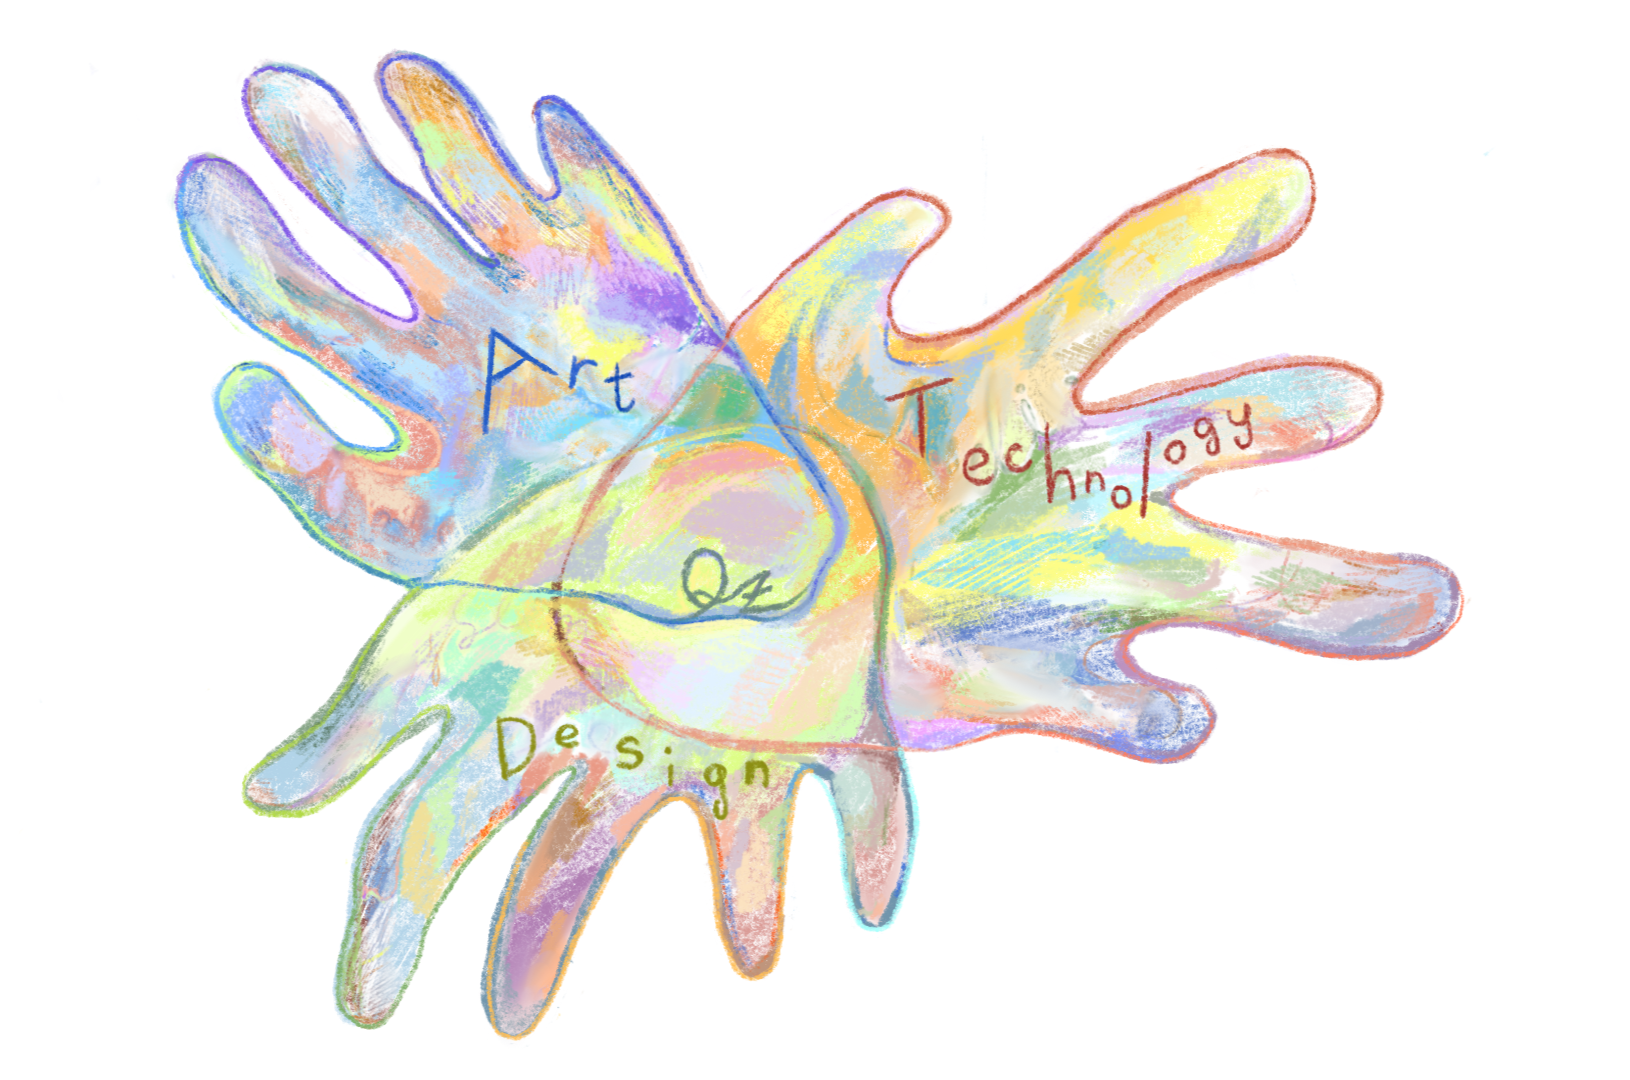 Art
Technology
Design